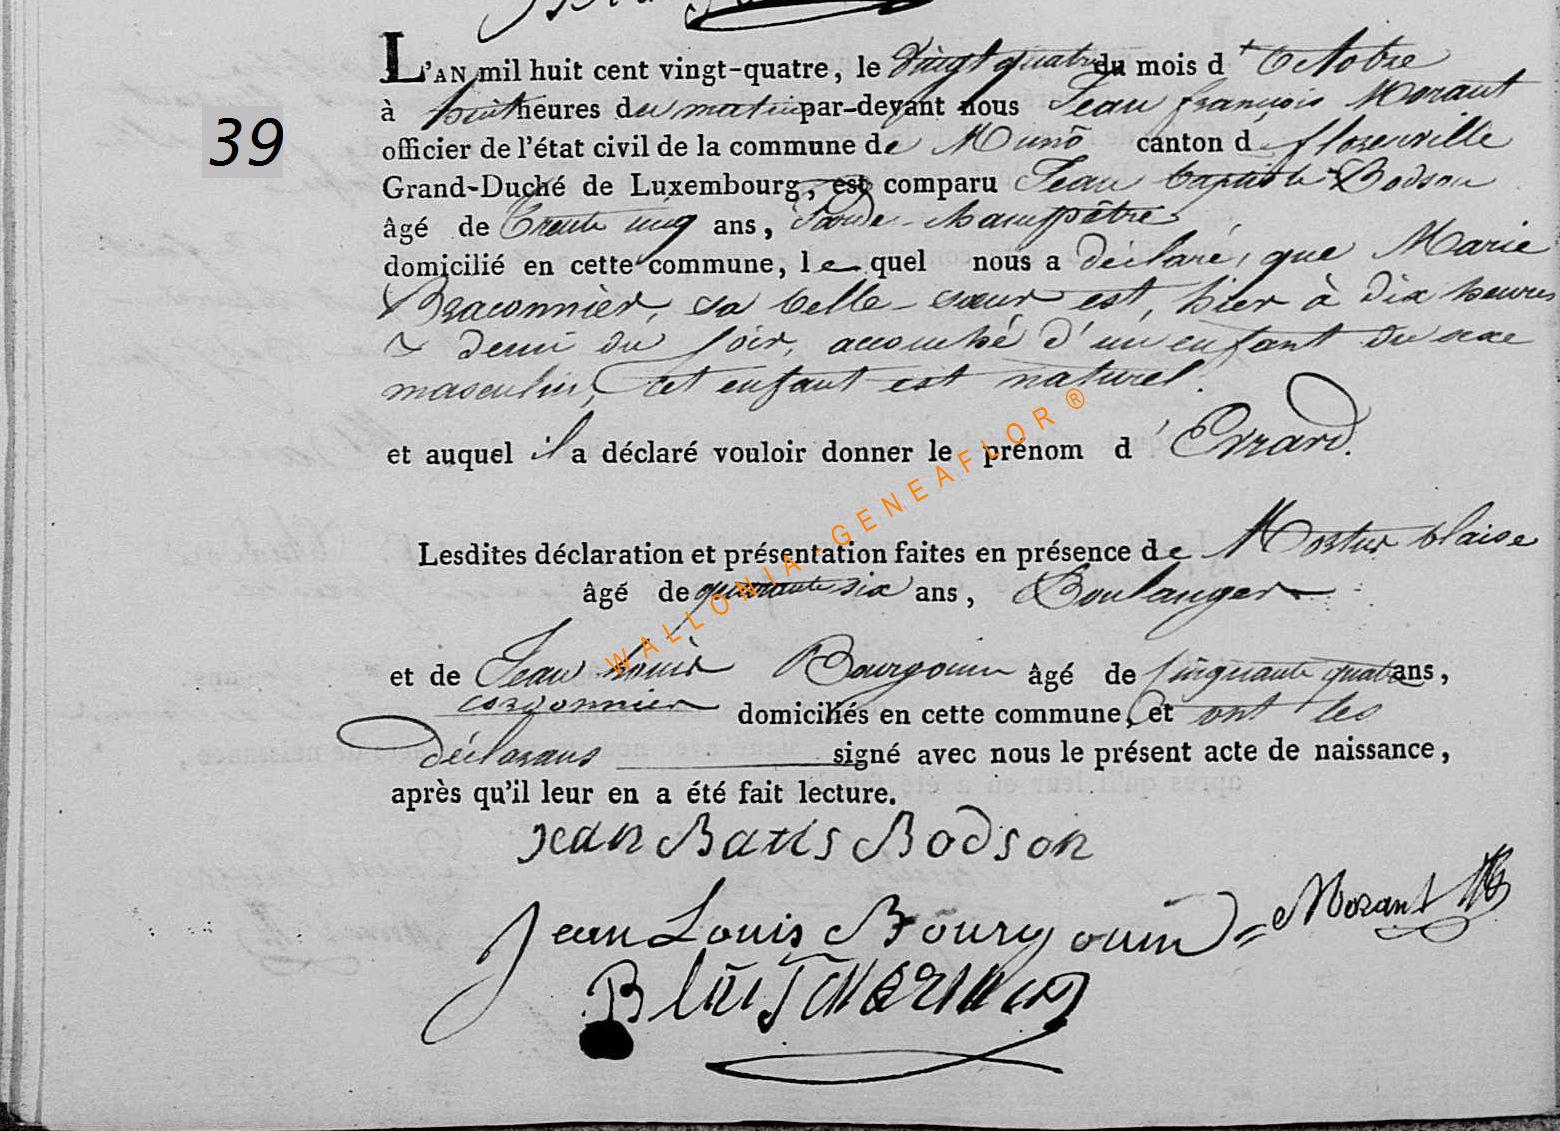 39
L'AN mil huit cent vingt-quatre, le vingt quatre du mois d'octobre
à huit heures du matin par-devant nous Jean françois Morant
officier de l'état civil de la commune de Muno canton d florenville
Grand-Duché de Luxembourg, est comparu Jean baptiste Bodson
âgé de trente cinq ans, Garde-champêtre
domicilié en cette commune, lequel nous a déclaré, que Marie
Braconnier, sa belle-sœur est, hier à dix heures
& demi du soir, accouché d'un enfant du sexe
masculin, cet enfant est naturel.
et auquel il a déclaré vouloir donner le prénom d'Errard.
Lesdites déclaration et présentation faites en présence de blaise
âgé de quarante six ans, Boulanger
et de Jean Louis Bourgouin âgé de cinquante quatre ans,
cordonnier domiciliés en cette commune, et ont les
déclarans signé avec nous le présent acte de naissance,
après qu'il leur en a été fait lecture.
Jean Batis Bodson
Jean Louis Bourgouin Morant
WALLONIA-GENEAFLOR ®